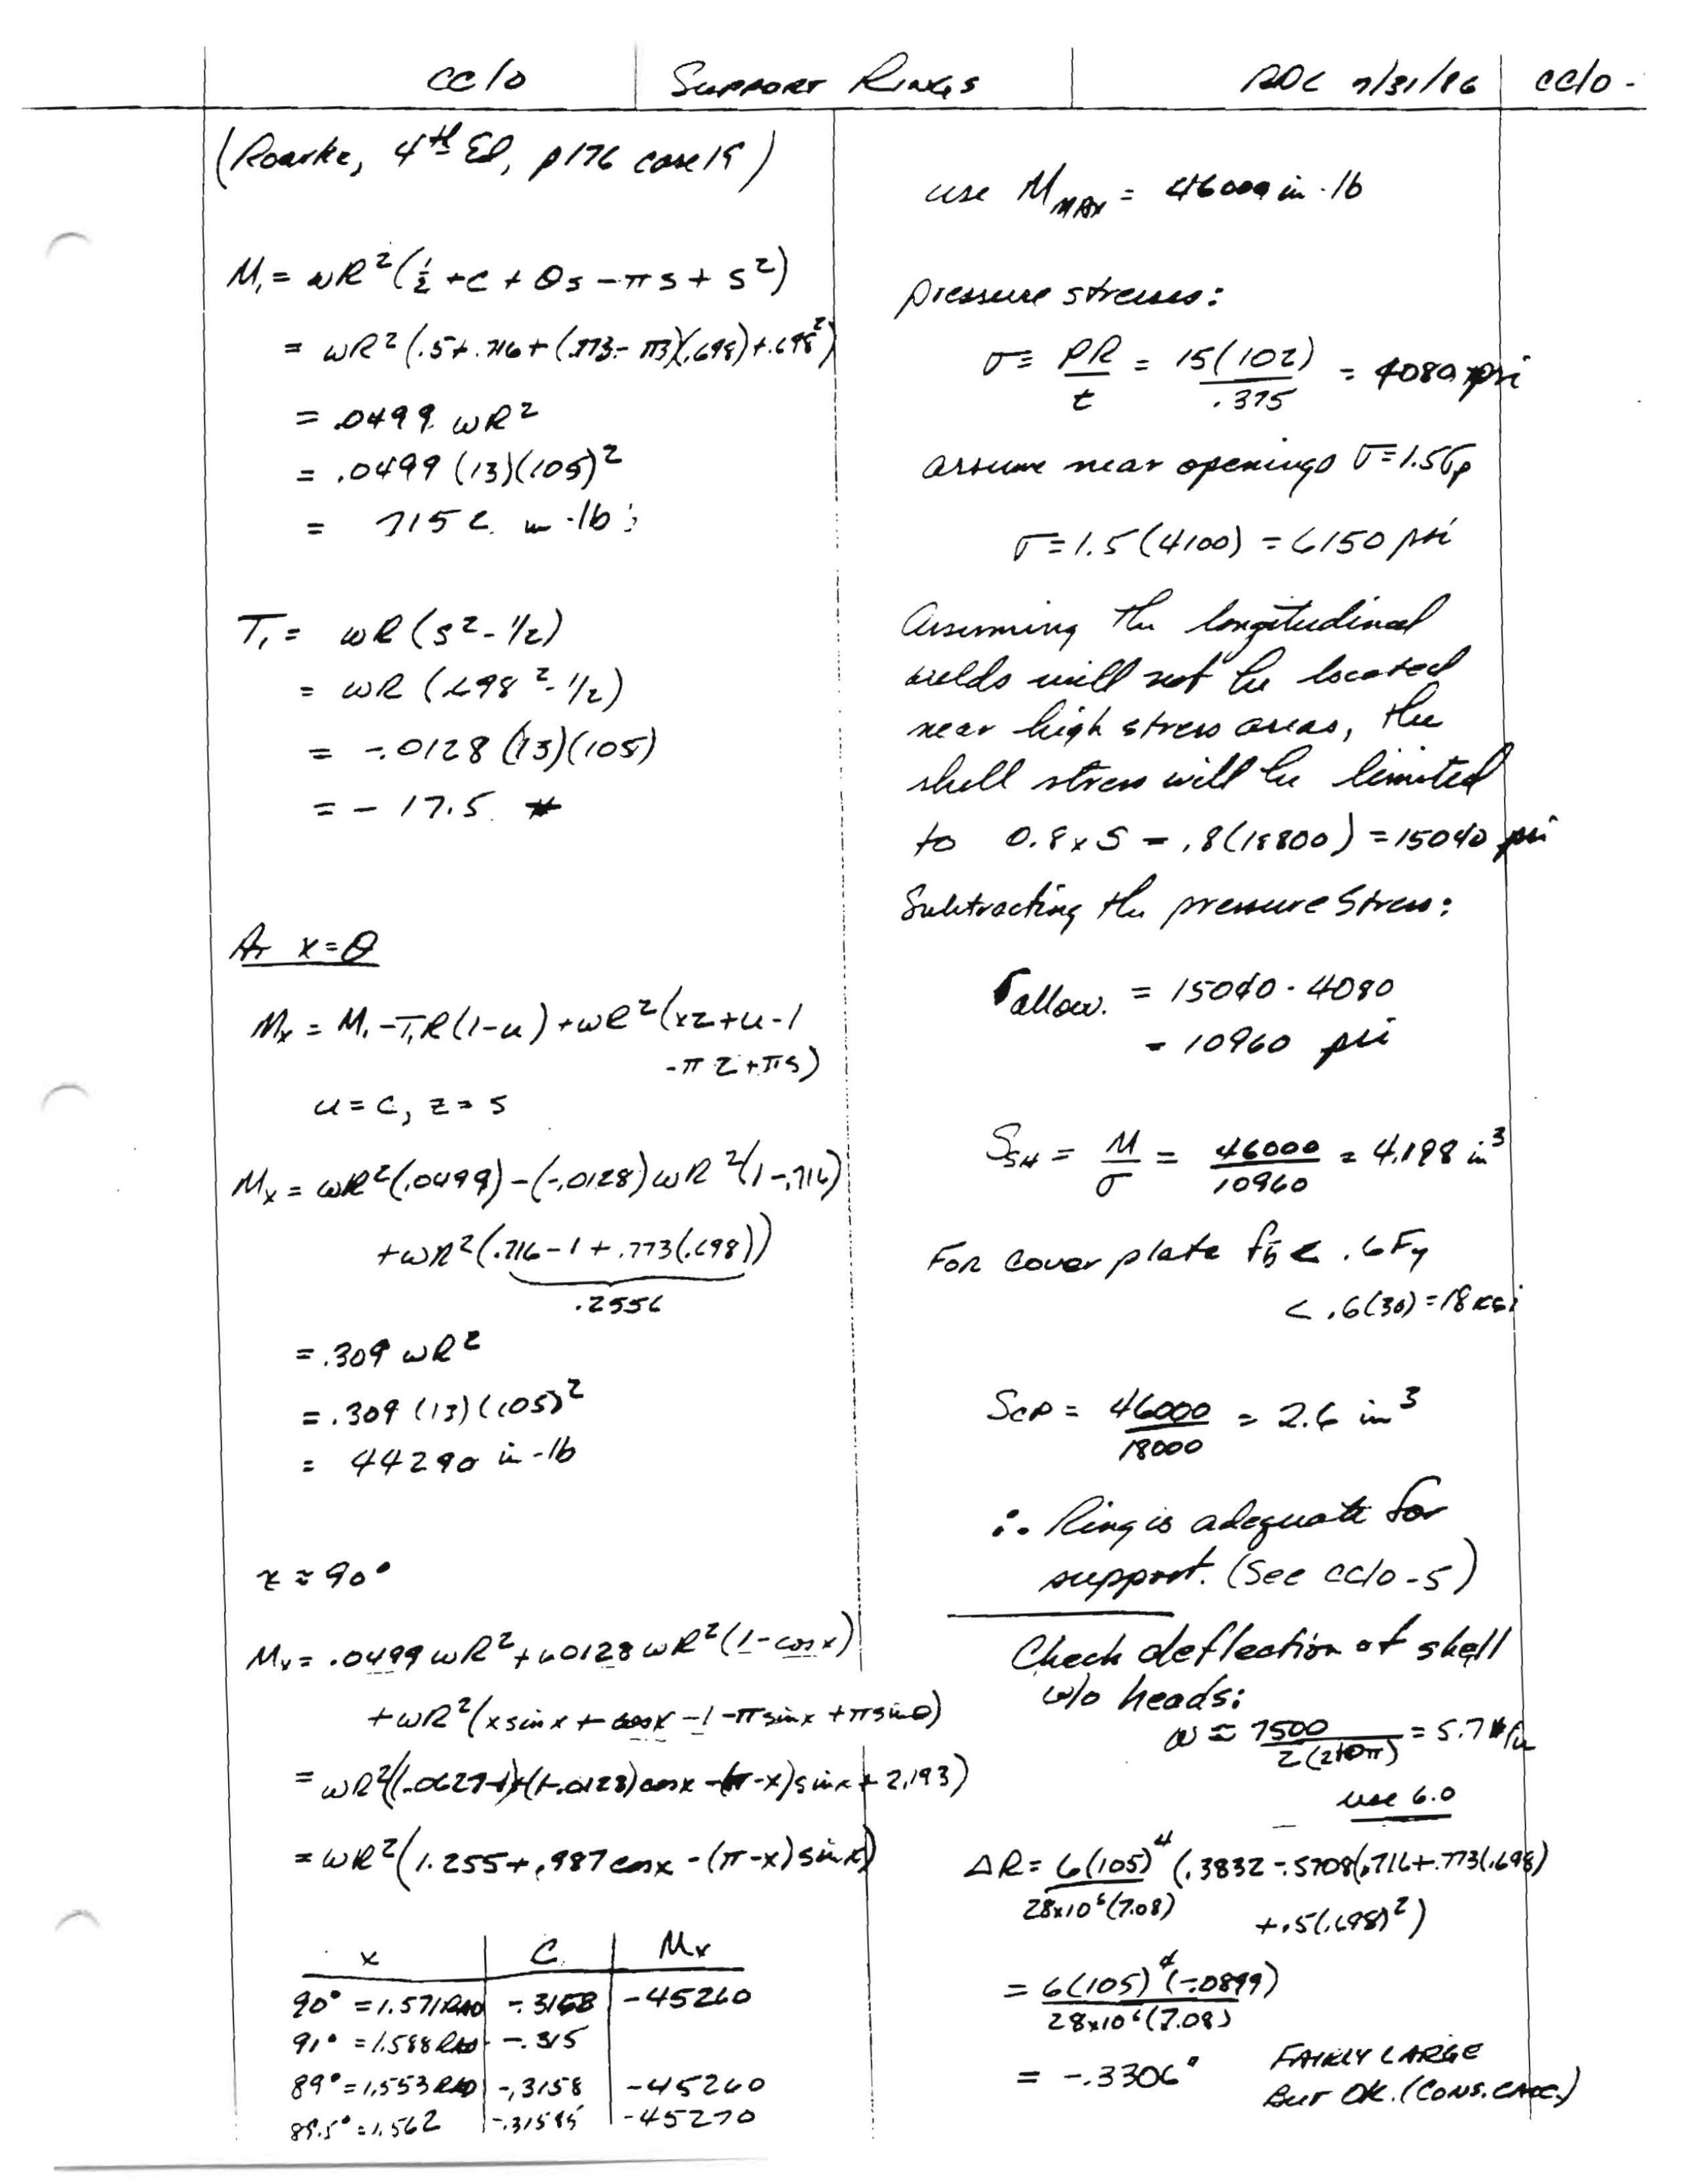 CC10
SUPPORT RINGS
RDC 7/31/86
CC10-
(Roarke, 4th Ed, p176 case 19)
M₁ = wR²(½ + c + θs - πs + s²)
= wR²(.5 + .716 + (.773 - π)(.698) + .698²)
= .0499 wR²
= .0499 (13)(105)²
= 7152 in-lb
T₁ = wR(s² - 1/2)
= wR(.698² - 1/2)
= -.0128 (13)(105)
= -17.5 #
At x = θ
Mx = M₁ - T₁R(1-u) + wR²(xz + u - 1
- πz + πs)
u = c, z = s
Mx = wR²(.0499) - (-.0128)wR²(1 - .716)
+ wR²(.716 - 1 + .773(.698))
.2556
= .309 wR²
= .309 (13)(105)²
= 44290 in-lb
x ≈ 90°
Mx = .0499 wR² + .0128 wR²(1 - cos x)
+ wR²(x sin x + cos x - 1 - π sin x + π sin θ)
= wR²((.0627-1) + (1-.0128) cos x - (π-x) sin x + 2.193)
= wR²(1.255 + .987 cos x - (π-x) sin x)
x C Mx
90° = 1.571 RAD -.3158 -45260
91° = 1.588 RAD -.315
89° = 1.553 RAD -.3158 -45260
89.5° = 1.562 -.31585 -45270
use M MAX = 46000 in-lb
pressure stresses:
σ = PR/t = 15(102)/.375 = 4080 psi
assume near openings σ = 1.5σp
σ = 1.5(4100) = 6150 psi
Assuming the longitudinal
welds will not be located
near high stress areas, the
shell stress will be limited
to 0.8 x S = .8(18800) = 15040 psi
Subtracting the pressure stress:
σallow. = 15040 - 4080
= 10960 psi
SSH = M/σ = 46000/10960 = 4.198 in³
For cover plate fb < .6Fy
< .6(30) = 18 ksi
SCP = 46000/18000 = 2.6 in³
∴ Ring is adequate for
support. (See CC10-5)
Check deflection of shell
w/o heads:
w ≈ 7500/2(210π) = 5.7 #/in
use 6.0
ΔR = 6(105)⁴/28x10⁶(7.08) (.3832 - .5708(.716 + .773(.698)
+ .5(.698)²)
= 6(105)⁴(-.0899)/28x10⁶(7.08)
= -.3306"
FAIRLY LARGE
BUT OK. (CONS. CALC.)